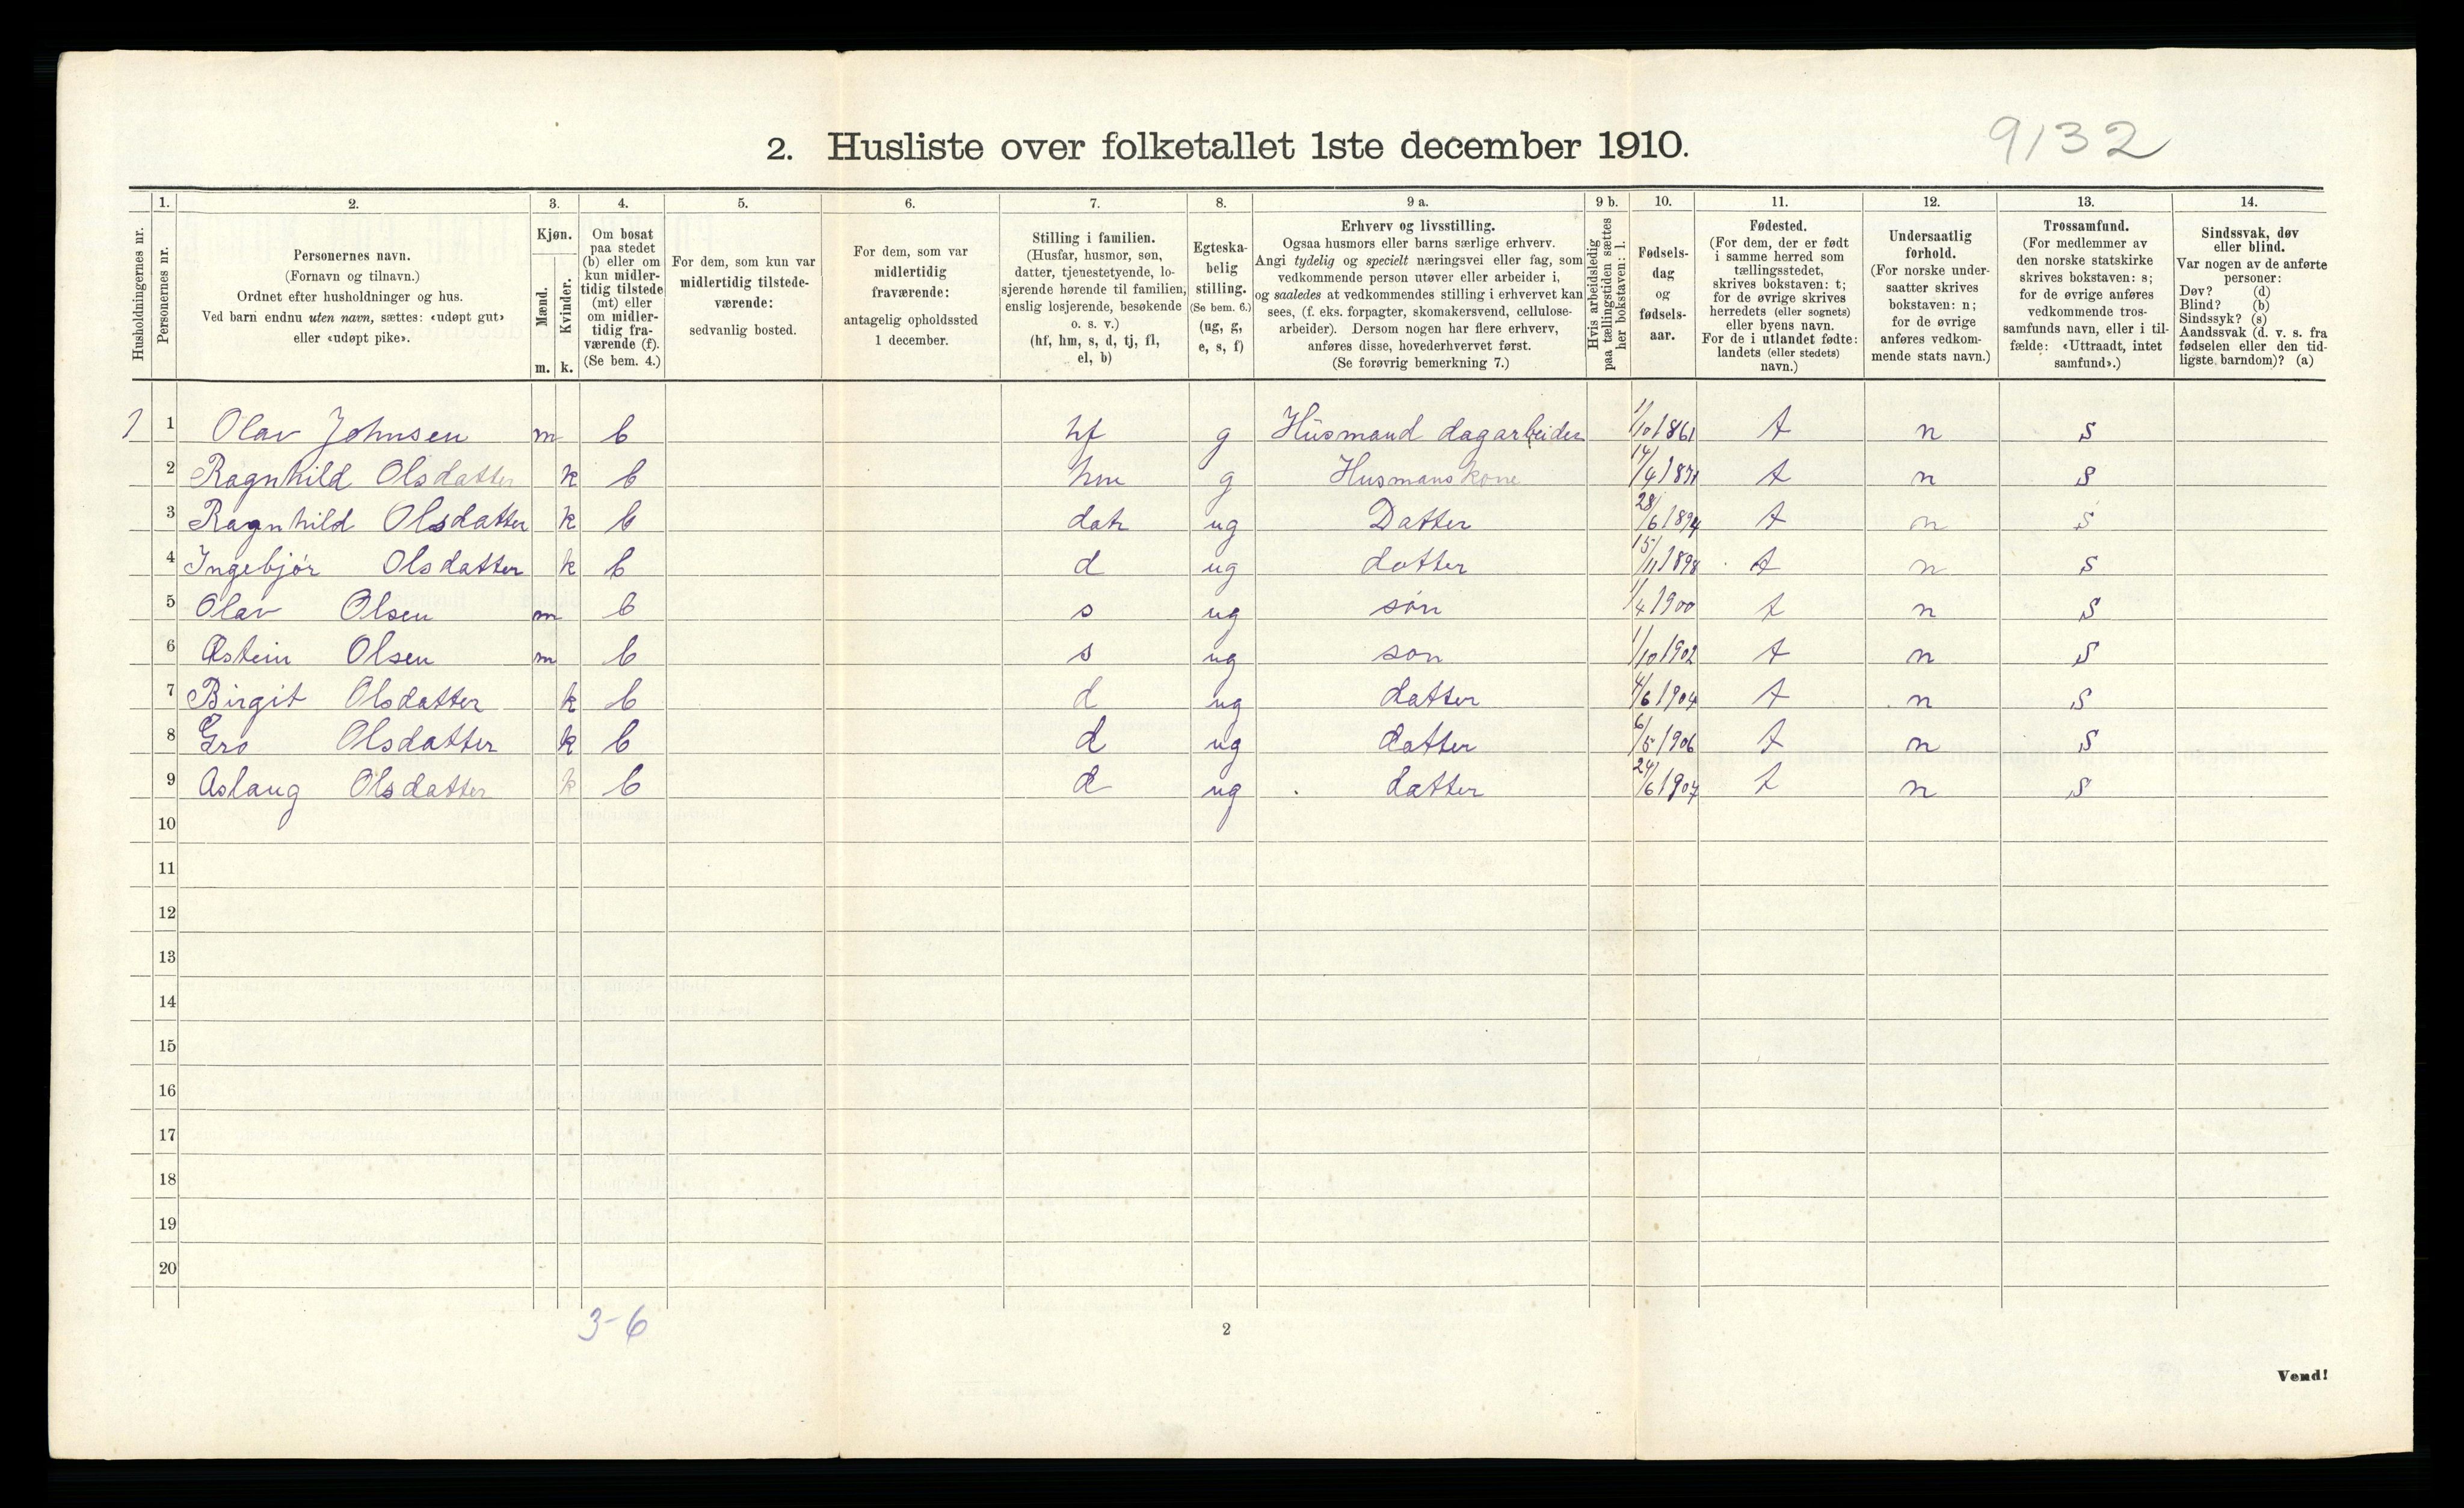 9132
2. Husliste over folketallet 1ste december 1910.
Husholdningernes nr.
1.
Personernes nr.
2.
Personernes navn.
(Fornavn og tilnavn.)
Ordnet efter husholdninger og hus.
Ved barn endnu uten navn, sættes: «udøpt gut»
eller «udøpt pike».
3.
Kjøn.
Mænd.
m.
Kvinder.
k.
4.
Om bosat
paa stedet
(b) eller om
kun midler-
tidig tilstede
(mt) eller
om midler-
tidig fra-
værende (f).
(Se bem. 4.)
5.
For dem, som kun var
midlertidig tilstede-
værende:
sedvanlig bosted.
6.
For dem, som var
midlertidig
fraværende:
antagelig opholdssted
1 december.
7.
Stilling i familien.
(Husfar, husmor, søn,
datter, tjenestetyende, lo-
sjerende hørende til familien,
enslig losjerende, besøkende
o. s. v.)
(hf, hm, s, d, tj, fl,
el, b)
8.
Egteska-
belig
stilling.
(Se bem. 6.)
(ug, g,
e, s, f)
9 a.
Erhverv og livsstilling.
Ogsaa husmors eller barns særlige erhverv.
Angi tydelig og specielt næringsvei eller fag, som
vedkommende person utøver eller arbeider i,
og saaledes at vedkommendes stilling i erhvervet kan
sees, (f. eks. forpagter, skomakersvend, cellulose-
arbeider). Dersom nogen har flere erhverv,
anføres disse, hovederhvervet først.
(Se forøvrig bemerkning 7.)
9 b.
Hvis arbeidsledig
paa tællingstiden sættes
her bokstaven: l.
10.
Fødsels-
dag
og
fødsels-
aar.
11.
Fødested.
(For dem, der er født
i samme herred som
tællingsstedet,
skrives bokstaven: t;
for de øvrige skrives
herredets (eller sognets)
eller byens navn.
For de i utlandet fødte:
landets (eller stedets)
navn.)
12.
Undersaatlig
forhold.
(For norske under-
saatter skrives
bokstaven: n;
for de øvrige
anføres vedkom-
mende stats navn.)
13.
Trossamfund.
(For medlemmer av
den norske statskirke
skrives bokstaven: s;
for de øvrige anføres
vedkommende tros-
samfunds navn, eller i til-
fælde: «Uttraadt, intet
samfund».)
14.
Sindssvak, døv
eller blind.
Var nogen av de anførte
personer:
Døv? (d)
Blind? (b)
Sindssyk? (s)
Aandssvak (d. v. s. fra
fødselen eller den tid-
ligste barndom)? (a)
1 1 Olav Johnsen m b hf g Husmand dagarbeider 1/10 1861 t n s
2 Ragnhild Olsdatter k b hm g Husmanskone 14/4 1871 t n s
3 Ragnhild Olsdatter k b dat ug Datter 28/6 1894 t n s
4 Ingebjór Olsdatter k b d ug datter 15/11 1898 t n s
5 Olav Olsen m b s ug són 1/4 1900 t n s
6 Østein Olsen m b s ug son 1/10 1902 t n s
7 Birgit Olsdatter k b d ug datter 4/6 1904 t n s
8 Gro Olsdatter k b d ug datter 6/5 1906 t n s
9 Aslaug Olsdatter k b d ug datter 24/6 1907 t n s
10
11
12
13
14
15
16
17
18
19
20
3-6
2
Vend!